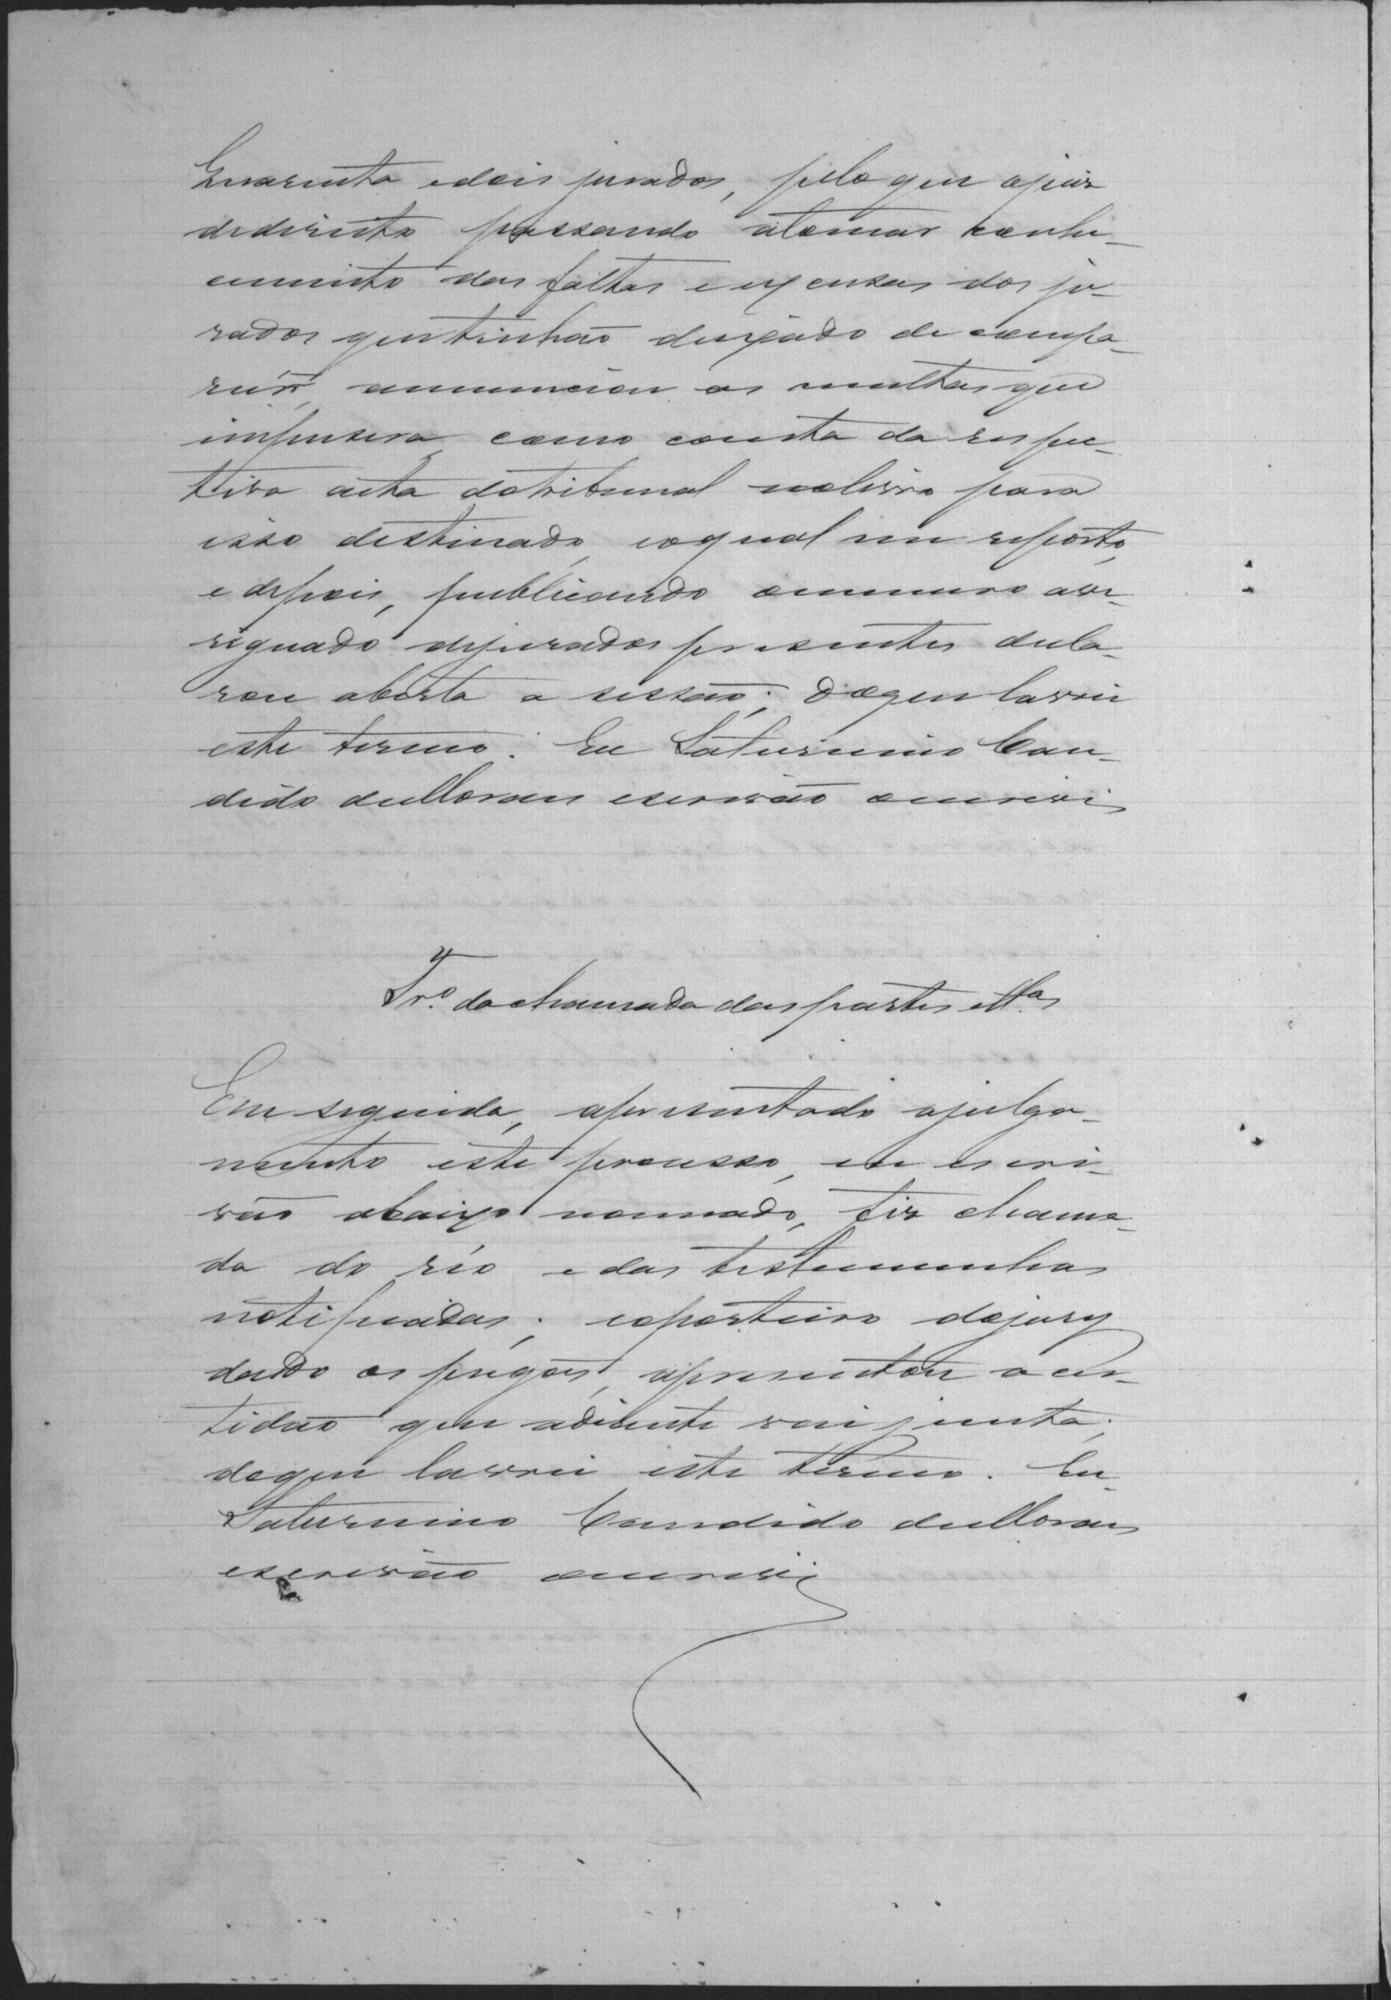 Quarenta e dois jurados, pelo que o juiz
de direito passando a tomar conhe-
cimento das faltas e excusas dos ju-
rados que tinhão deixado de compa-
recer, annunciou as multas que
impusera, como consta da respec-
tiva acta do tribunal no livro para
isso destinado, ao qual me reporto,
e depois, publicando o numero ave-
riguado de jurados presentes decla-
rou aberta a sessão; do que lavrei
este termo. Eu Saturnino Can-
dido de Moraes escrivão o escrevi
Tr.º da chamada das partes e t.as
Em seguida, apresentado a julga-
mento este processo, eu escri-
vão abaixo nomeado, fiz chama-
da do réo e das testemunhas
notificadas; e o porteiro do jury
dando os pregões, apresentou a cer-
tidão que adiante vai junta;
do que lavrei este termo. Eu
Saturnino Candido de Moraes
escrivão o escrevi